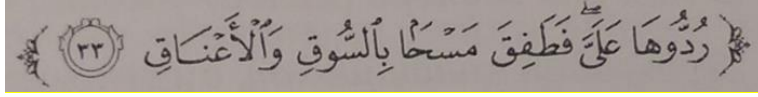 ﴿ رُدُّوهَا عَلَيَّۖ فَطَفِقَ مَسْحَۢا بِٱلسُّوقِ وَٱلْأَعْنَاقِ ٣٣ ﴾